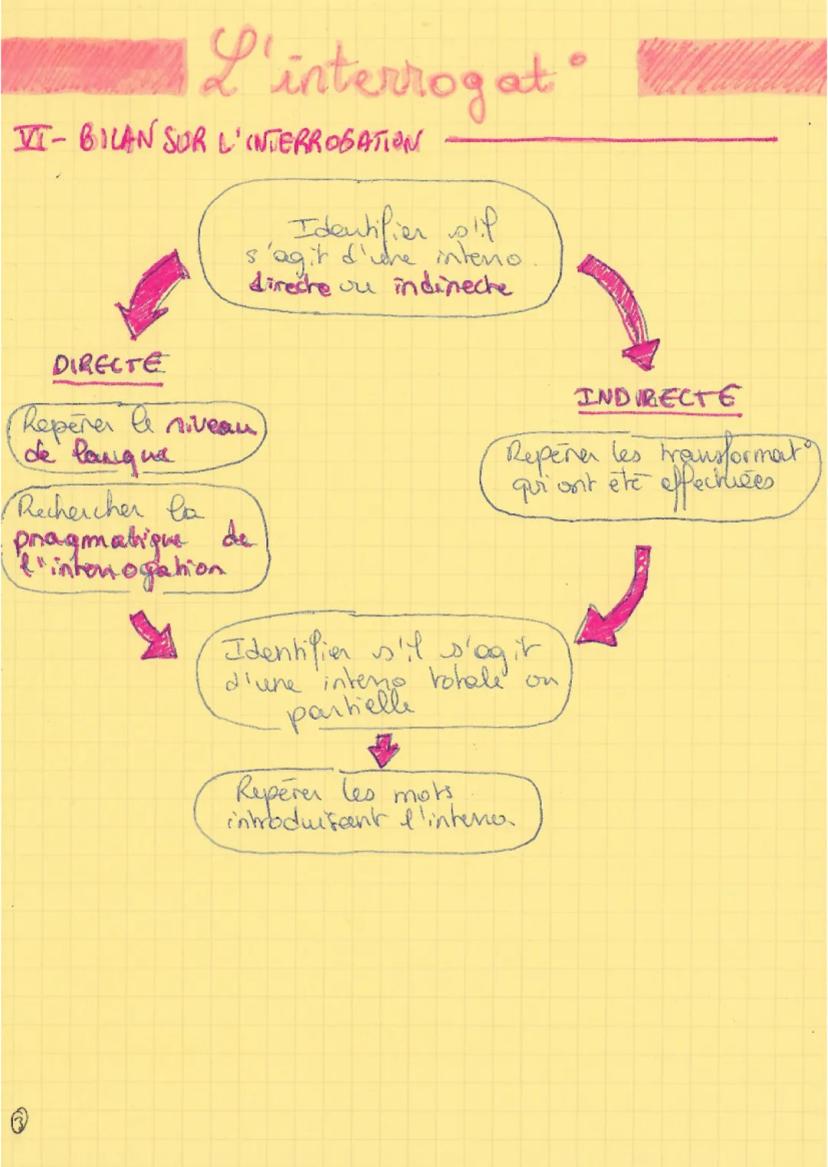 L'interrogat°
VI- BILAN SUR L'INTERROGATION
Identifier s'il
s'agit d'une interro.
directe ou indirecte
DIRECTE
Repérer le niveau
de langue
Rechercher la
pragmatique de
l'interrogation
INDIRECTE
Repérer les transformat°
qui ont été effectuées
Identifier s'il s'agit
d'une interro totale ou
partielle
Repérer les mots
introduisant l'interro.
3